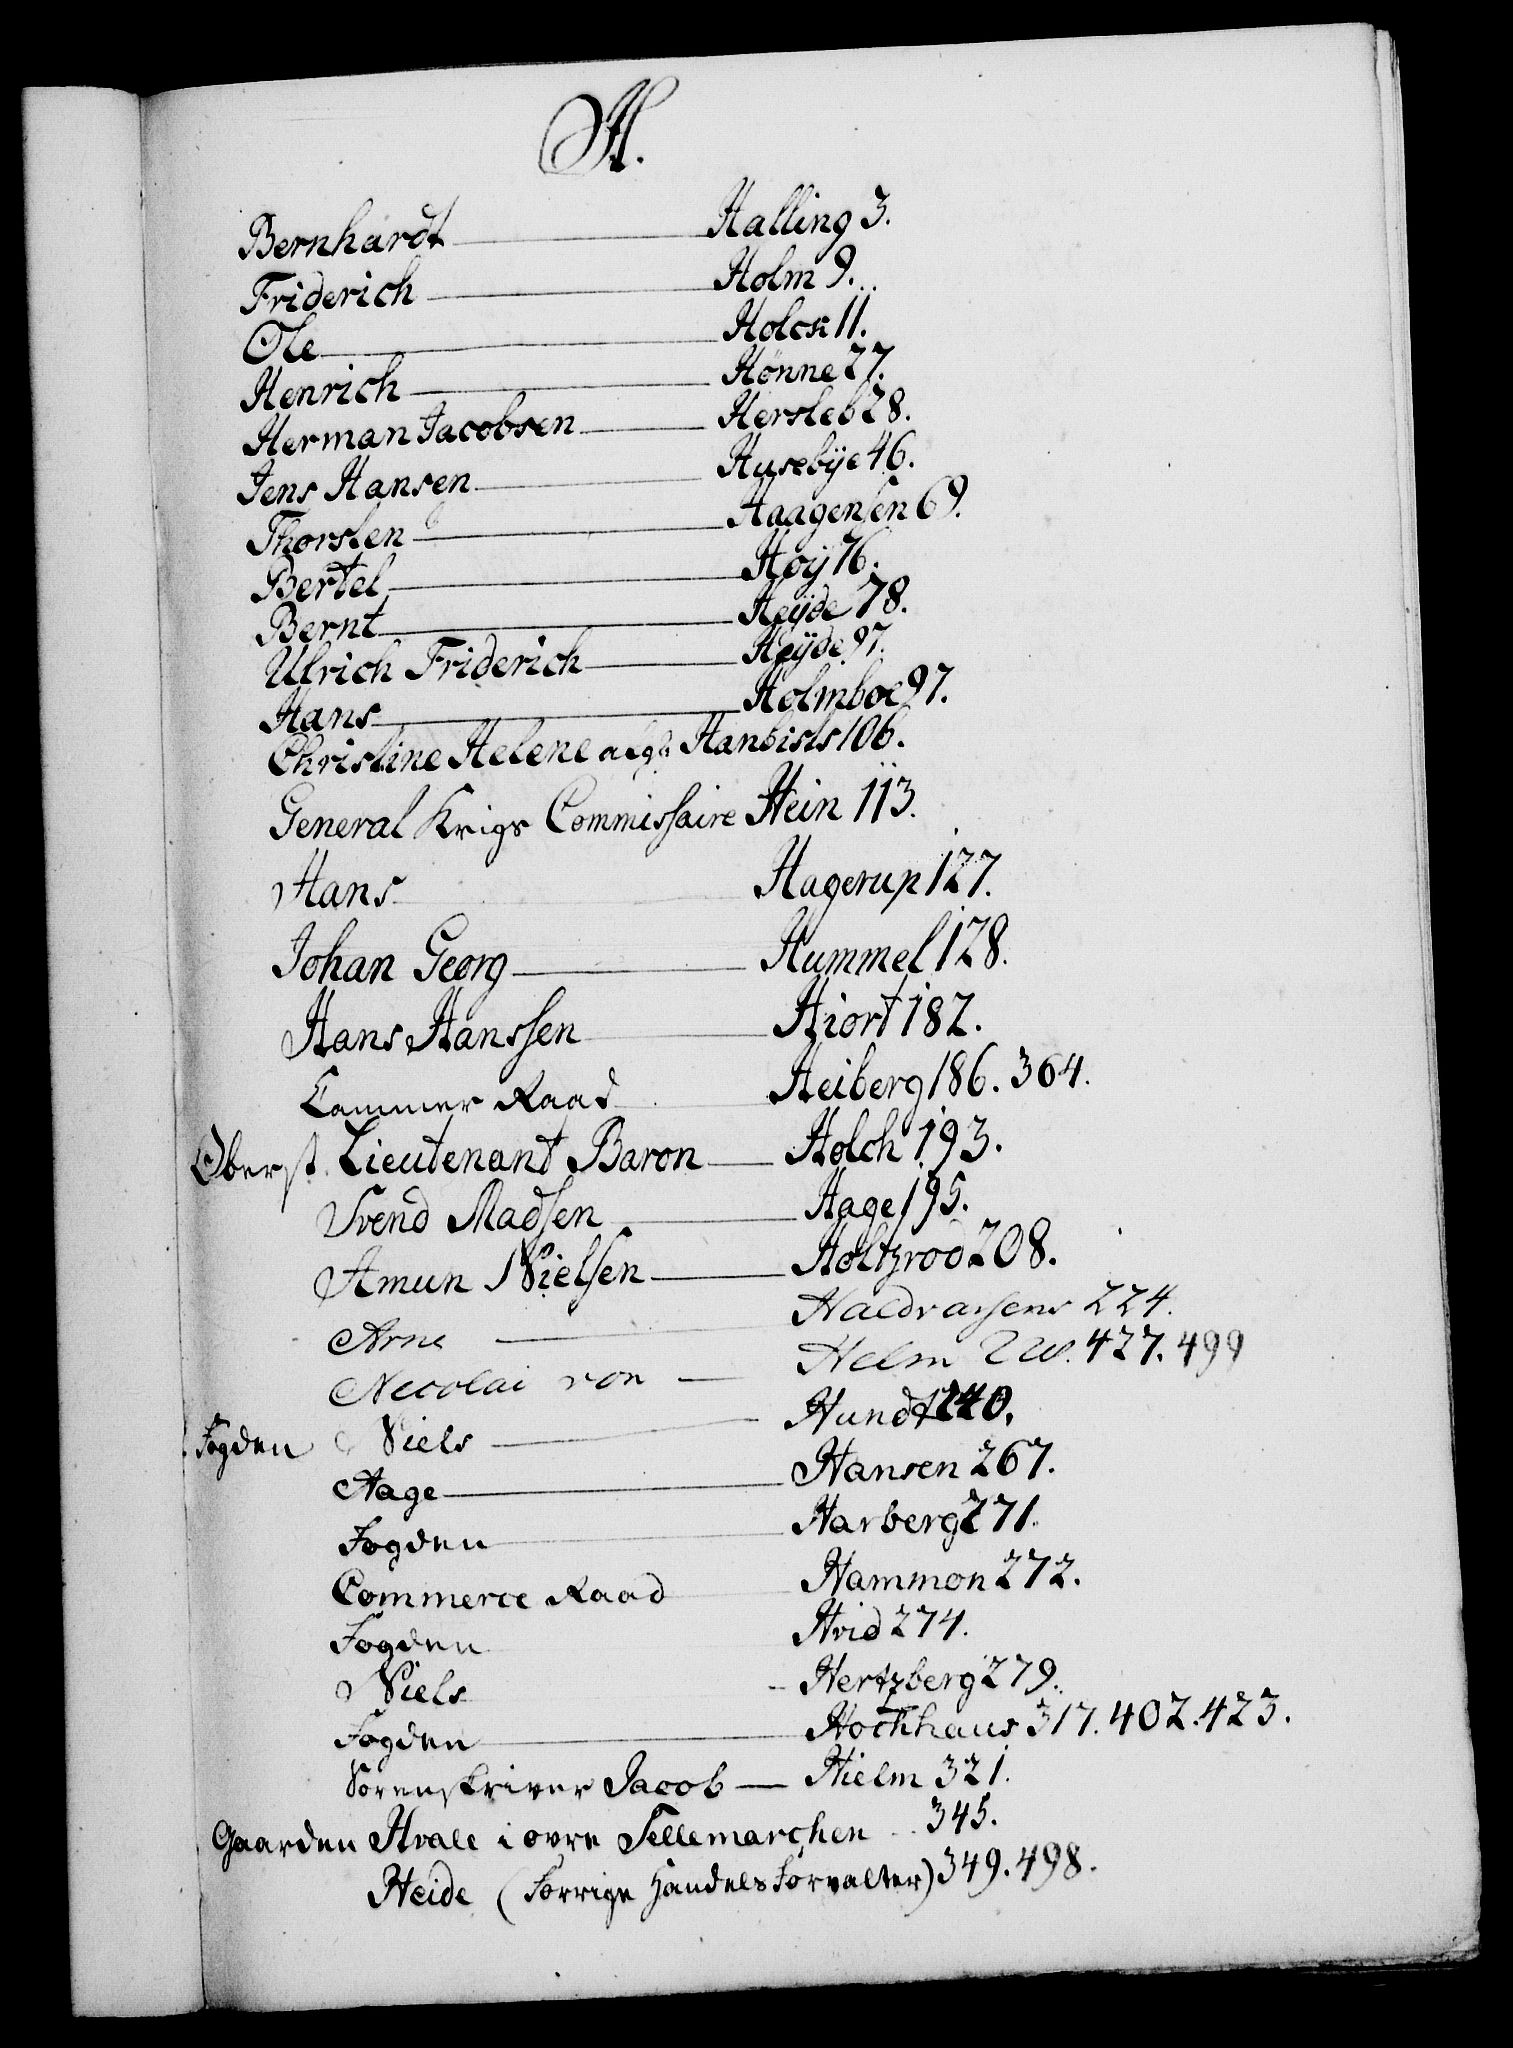 H.
Bernhardt Halling 3.
Friderich Holm 9.
Ole Holck 11.
Henrich Hønne 27.
Herman Jacobsen Hersleb 28.
Jens Hansen Husebÿe 46.
Thorsten Haagensen 69.
Bertel Hoÿ 76.
Bernt Heÿde 78.
Ulrich Friderich Heÿde 97.
Hans Holmboe 97.
Christine Helene Hanbists 106.
General Krigs Commissaire Hein 113.
Hans Hagerup 127.
Johan Georg Hummel 128.
Hans Hanssen Hiort 182.
Cammer Raad Heiberg 186. 364.
Oberst Lieutenant Baron Holch 193.
Svend Madsen Hage 195.
Amun Nielsen Holtzrod 208.
Arne Haldrassens 224.
Necolai von Helm 427. 499
Fogden Niels Hundt 240.
Aage Hansen 267.
Fogden Harberg 271.
Commerce Raad Hammon 272.
Fogden Hvid 274.
Niels Hertzberg 279.
Fogden Hochhaus 317. 402. 423.
Sorenskriver Jacob Hielm 321.
Gaarden Hvale i øvre Tellemarchen 345.
Heide (Forrige Handels Forvalter) 349. 498.